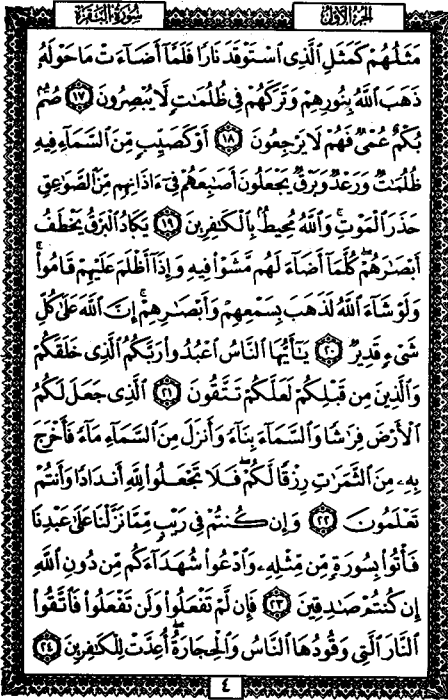 الجزء الأول
سورة البقرة
مَثَلُهُمْ كَمَثَلِ الَّذِي اسْتَوْقَدَ نَارًا فَلَمَّا أَضَاءَتْ مَا حَوْلَهُ
ذَهَبَ اللَّهُ بِنُورِهِمْ وَتَرَكَهُمْ فِي ظُلُمَاتٍ لَا يُبْصِرُونَ ١٧ صُمٌّ
بُكْمٌ عُمْيٌ فَهُمْ لَا يَرْجِعُونَ ١٨ أَوْ كَصَيِّبٍ مِّنَ السَّمَاءِ فِيهِ
ظُلُمَاتٌ وَرَعْدٌ وَبَرْقٌ يَجْعَلُونَ أَصَابِعَهُمْ فِي آذَانِهِم مِّنَ الصَّوَاعِقِ
حَذَرَ الْمَوْتِ وَاللَّهُ مُحِيطٌ بِالْكَافِرِينَ ١٩ يَكَادُ الْبَرْقُ يَخْطَفُ
أَبْصَارَهُمْ كُلَّمَا أَضَاءَ لَهُم مَّشَوْا فِيهِ وَإِذَا أَظْلَمَ عَلَيْهِمْ قَامُوا
وَلَوْ شَاءَ اللَّهُ لَذَهَبَ بِسَمْعِهِمْ وَأَبْصَارِهِمْ إِنَّ اللَّهَ عَلَىٰ كُلِّ
شَيْءٍ قَدِيرٌ ٢٠ يَا أَيُّهَا النَّاسُ اعْبُدُوا رَبَّكُمُ الَّذِي خَلَقَكُمْ
وَالَّذِينَ مِن قَبْلِكُمْ لَعَلَّكُمْ تَتَّقُونَ ٢١ الَّذِي جَعَلَ لَكُمُ
الْأَرْضَ فِرَاشًا وَالسَّمَاءَ بِنَاءً وَأَنزَلَ مِنَ السَّمَاءِ مَاءً فَأَخْرَجَ
بِهِ مِنَ الثَّمَرَاتِ رِزْقًا لَّكُمْ فَلَا تَجْعَلُوا لِلَّهِ أَندَادًا وَأَنتُمْ
تَعْلَمُونَ ٢٢ وَإِن كُنتُمْ فِي رَيْبٍ مِّمَّا نَزَّلْنَا عَلَىٰ عَبْدِنَا
فَأْتُوا بِسُورَةٍ مِّن مِّثْلِهِ وَادْعُوا شُهَدَاءَكُم مِّن دُونِ اللَّهِ
إِن كُنتُمْ صَادِقِينَ ٢٣ فَإِن لَّمْ تَفْعَلُوا وَلَن تَفْعَلُوا فَاتَّقُوا
النَّارَ الَّتِي وَقُودُهَا النَّاسُ وَالْحِجَارَةُ أُعِدَّتْ لِلْكَافِرِينَ ٢٤
٤